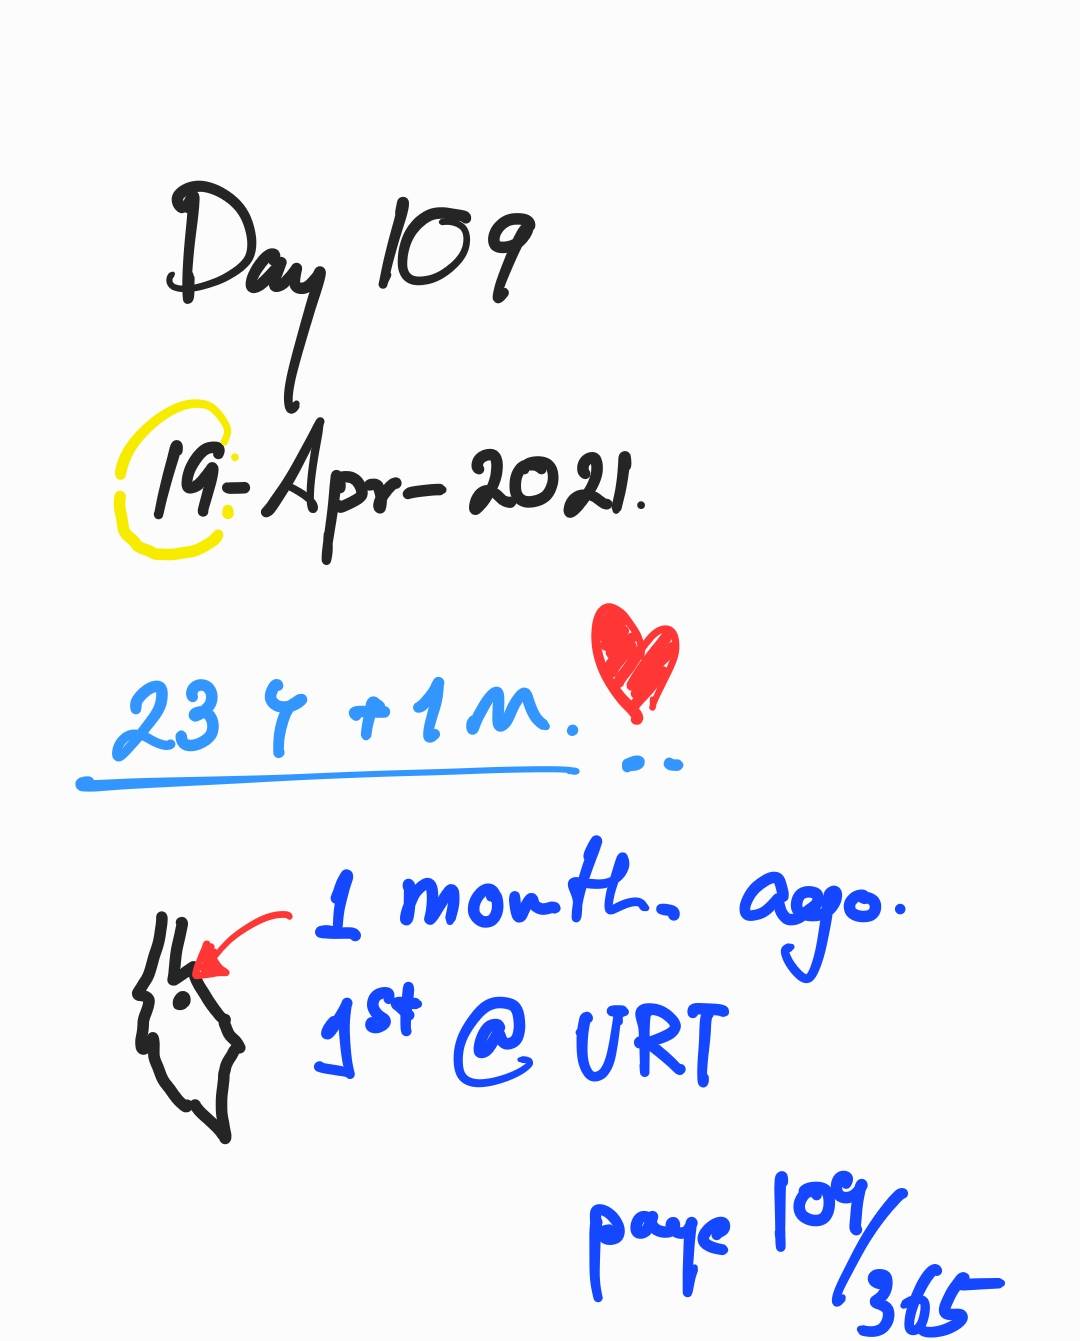 Day 109
19-Apr-2021.
23 Y + 1 M.
1 month ago.
1st @ URT
page 109/365